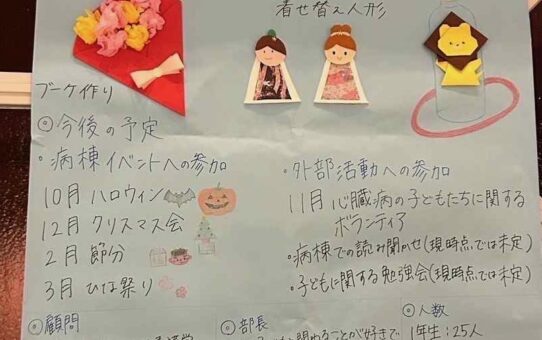 着せ替え人形
ブーケ作り
◎今後の予定
・病棟イベントへの参加
10月 ハロウィン
12月 クリスマス会
2月 節分
3月 ひな祭り
・外部活動への参加
11月 心臓病の子どもたちに関する
ボランティア
・病棟での読み聞かせ(現時点では未定)
・子どもに関する勉強会(現時点では未定)
◎顧問
◎部長
ことが好きで
◎人数
1年生:25人